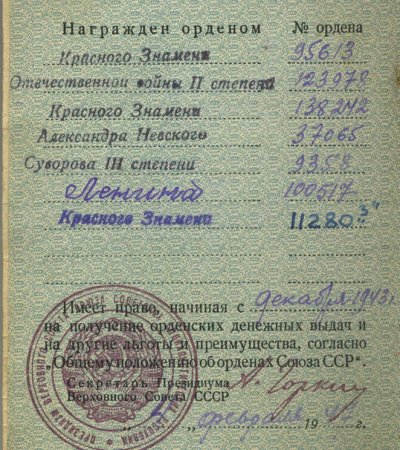 Награжден орденом № ордена
Красного Знамени 95613
Отечественной войны II степени 123978
Красного Знамени 138242
Александра Невского 37065
Суворова III степени 9358
Ленина 100517
Красного Знамени 11280 3"
Имеет право, начиная с декабря 1943г.
на получение орденских денежных выдач и
на другие льготы и преимущества, согласно
"Общему положению об орденах Союза ССР".
Секретарь Президиума А. Горкин
Верховного Совета СССР
февраля 19 г.